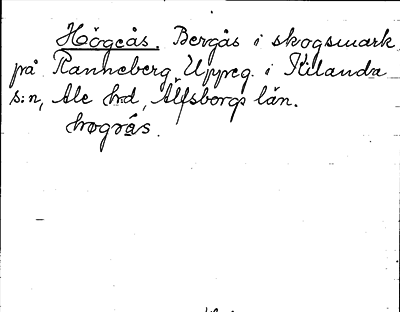 Högeås. Bergås i skogsmark
på Ranneberg Uppeg. i Kilanda
s:n, Ale hd, Älfsborgs län.
hogrås.